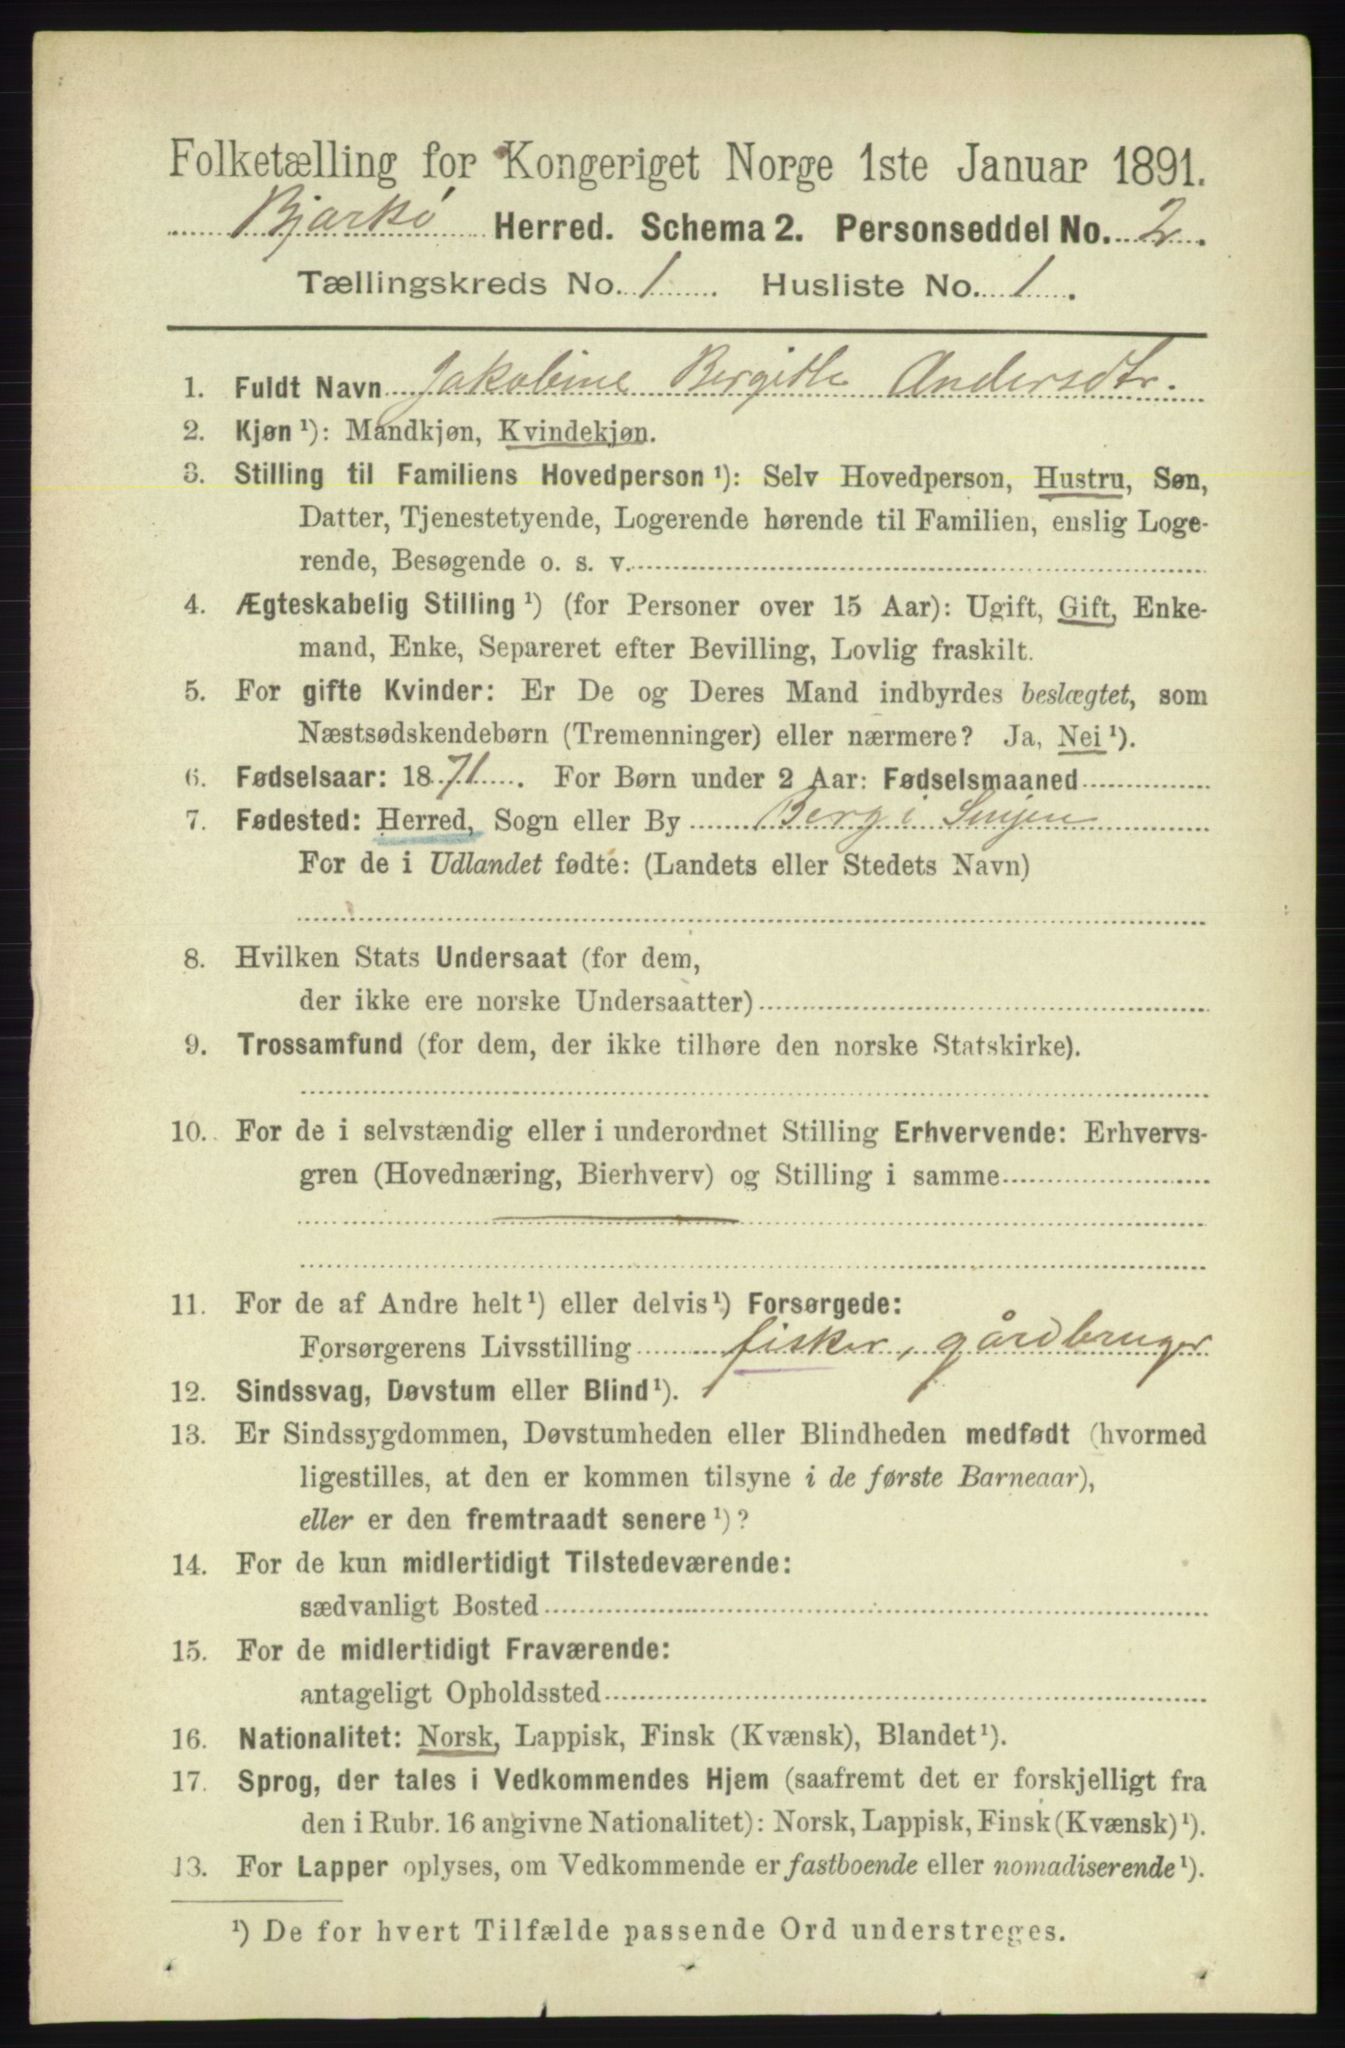 Folketælling for Kongeriget Norge 1ste Januar 1891.
Bjarkø Herred. Schema 2. Personseddel No. 2.
Tællingskreds No. 1 Husliste No. 1.
1. Fuldt Navn Jakobine Bergitte Andersdtr.
2. Kjøn ¹): Mandkjøn, Kvindekjøn.
3. Stilling til Familiens Hovedperson ¹): Selv Hovedperson, Hustru, Søn,
Datter, Tjenestetyende, Logerende hørende til Familien, enslig Loge-
rende, Besøgende o. s. v.
4. Ægteskabelig Stilling ¹) (for Personer over 15 Aar): Ugift, Gift, Enke-
mand, Enke, Separeret efter Bevilling, Lovlig fraskilt.
5. For gifte Kvinder: Er De og Deres Mand indbyrdes beslægtet, som
Næstsødskendebørn (Tremenninger) eller nærmere? Ja, Nei ¹).
6. Fødselsaar: 1871. For Børn under 2 Aar: Fødselsmaaned
7. Fødested: Herred, Sogn eller By Berg i Sinjen
For de i Udlandet fødte: (Landets eller Stedets Navn)
8. Hvilken Stats Undersaat (for dem,
der ikke ere norske Undersaatter)
9. Trossamfund (for dem, der ikke tilhøre den norske Statskirke).
10. For de i selvstændig eller i underordnet Stilling Erhvervende: Erhvervs-
gren (Hovednæring, Bierhverv) og Stilling i samme
11. For de af Andre helt ¹) eller delvis ¹) Forsørgede:
Forsørgerens Livsstilling fisker, gårdbruger
12. Sindssvag, Døvstum eller Blind ¹).
13. Er Sindssygdommen, Døvstumheden eller Blindheden medfødt (hvormed
ligestilles, at den er kommen tilsyne i de første Barneaar),
eller er den fremtraadt senere ¹)?
14. For de kun midlertidigt Tilstedeværende:
sædvanligt Bosted
15. For de midlertidigt Fraværende:
antageligt Opholdssted
16. Nationalitet: Norsk, Lappisk, Finsk (Kvænsk), Blandet ¹).
17. Sprog, der tales i Vedkommendes Hjem (saafremt det er forskjelligt fra
den i Rubr. 16 angivne Nationalitet): Norsk, Lappisk, Finsk (Kvænsk) ¹).
13. For Lapper oplyses, om Vedkommende er fastboende eller nomadiserende ¹).
¹) De for hvert Tilfælde passende Ord understreges.